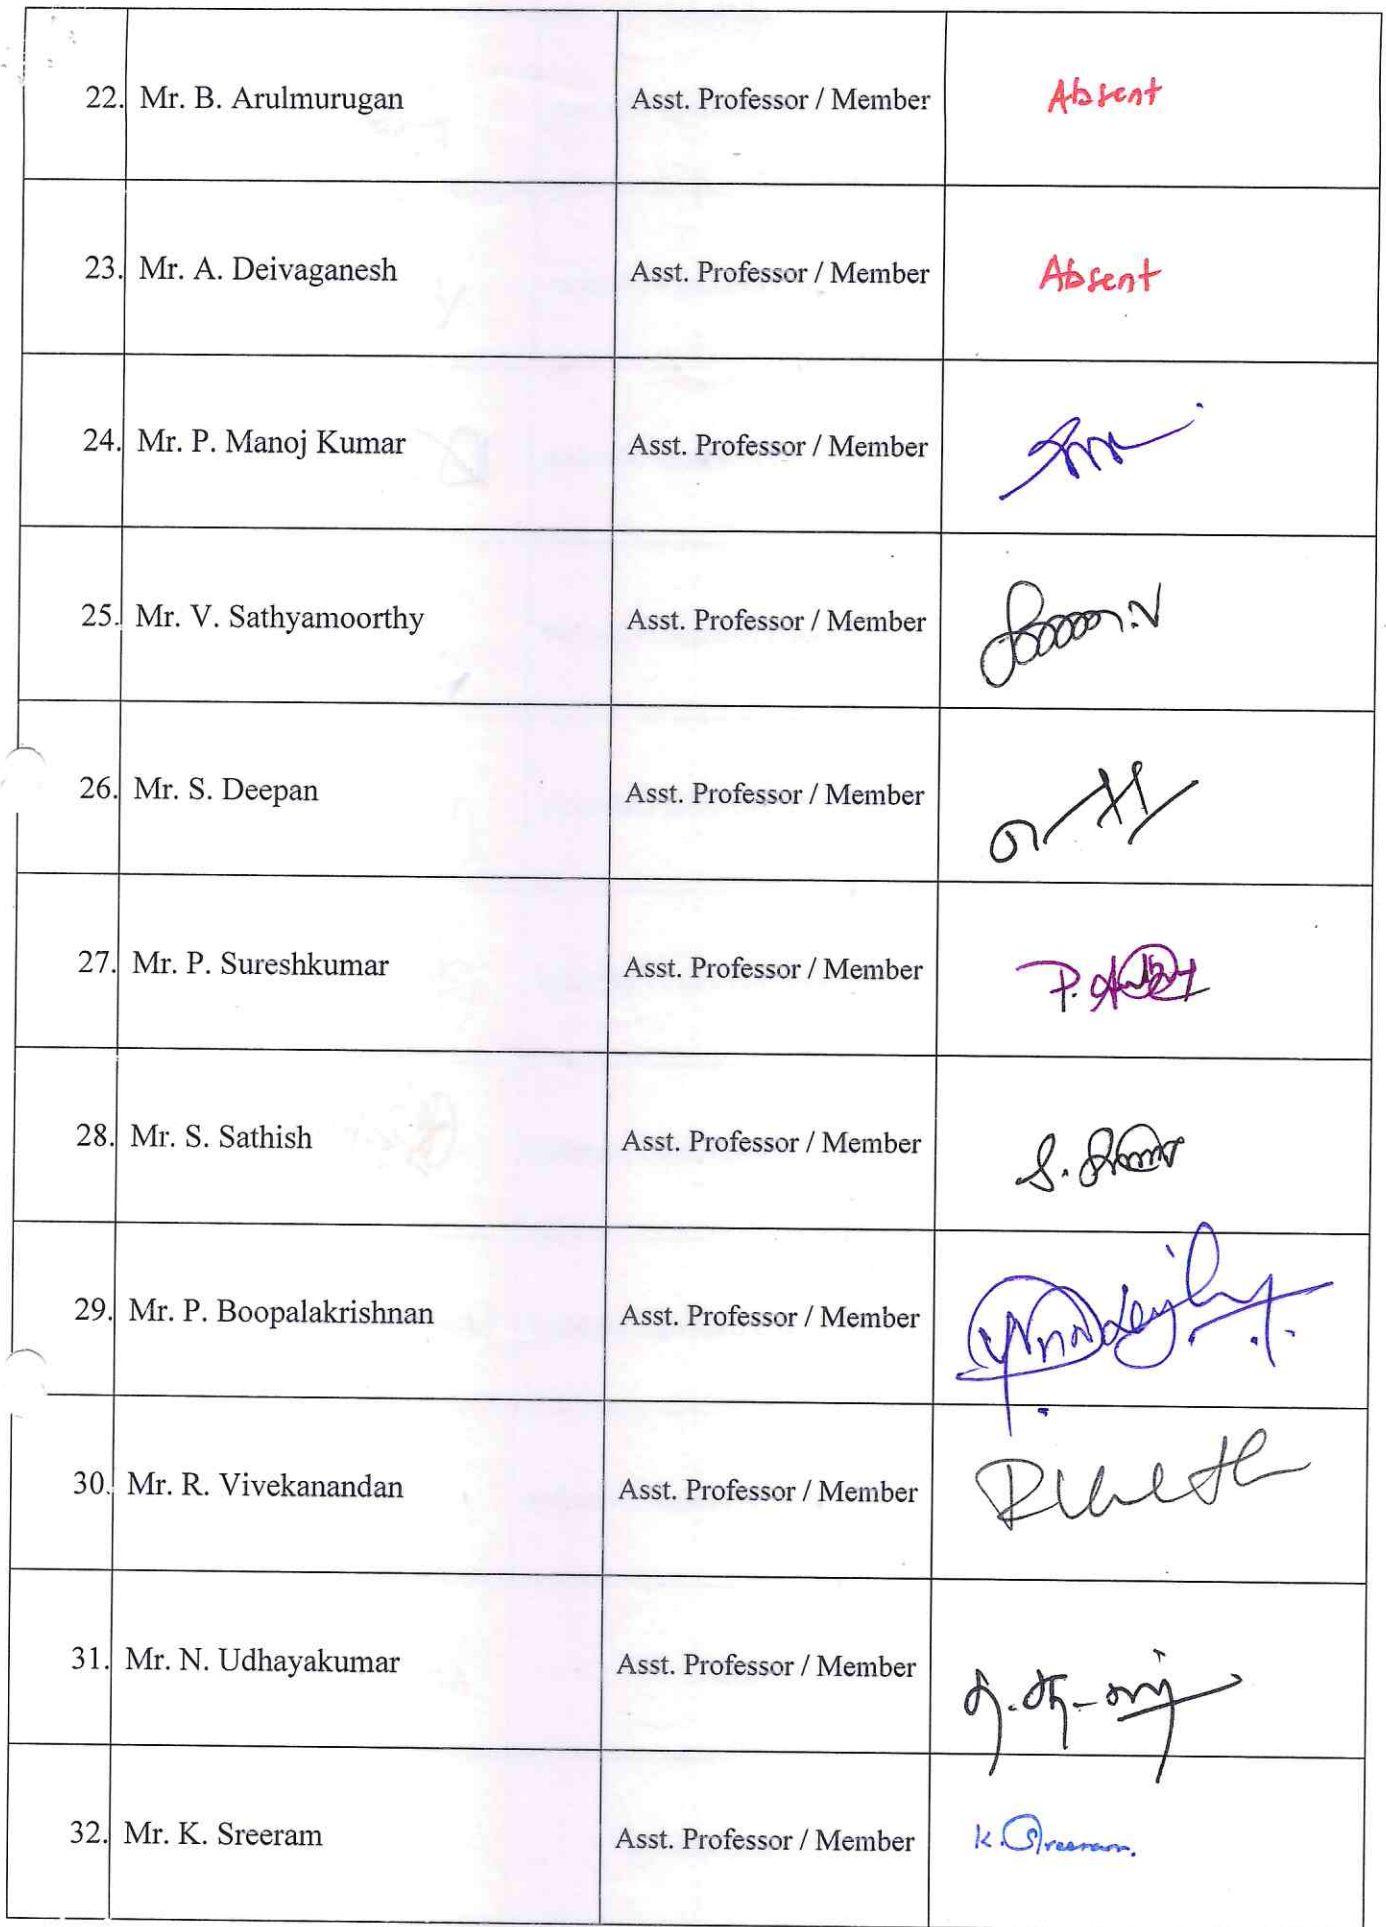 22. Mr. B. Arulmurugan Asst. Professor / Member Absent
23. Mr. A. Deivaganesh Asst. Professor / Member Absent
24. Mr. P. Manoj Kumar Asst. Professor / Member
25. Mr. V. Sathyamoorthy Asst. Professor / Member
26. Mr. S. Deepan Asst. Professor / Member
27. Mr. P. Sureshkumar Asst. Professor / Member
28. Mr. S. Sathish Asst. Professor / Member
29. Mr. P. Boopalakrishnan Asst. Professor / Member
30. Mr. R. Vivekanandan Asst. Professor / Member
31. Mr. N. Udhayakumar Asst. Professor / Member
32. Mr. K. Sreeram Asst. Professor / Member K. Sreeram.